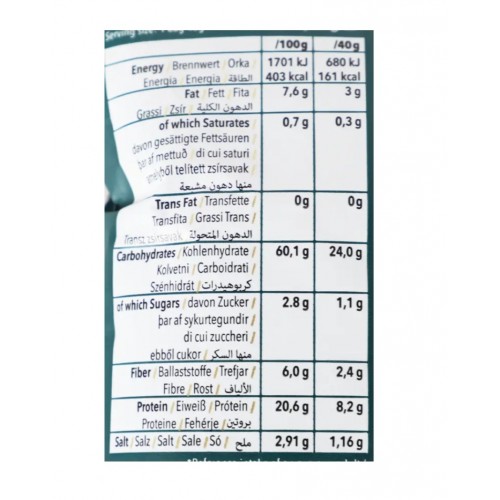 Serving size:
/100g /40g
Energy / Brennwert / Orka / 1701 kJ 680 kJ
Energia / Energia / الطاقة 403 kcal 161 kcal
Fat / Fett / Fita / 7,6 g 3 g
Grassi / Zsír / الدهون الكلية
of which Saturates / 0,7 g 0,3 g
davon gesättigte Fettsäuren
þar af mettuð / di cui saturi
telített zsírsavak
منها دهون مشبعة
Trans Fat / Transfette / 0g 0g
Transfita / Grassi Trans /
Transz zsírsavak الدهون المتحولة
Carbohydrates / Kohlenhydrate / 60,1 g 24,0 g
Kolvetni / Carboidrati /
Szénhidrát / كربوهيدرات
of which Sugars / davon Zucker / 2.8 g 1,1 g
þar af sykurtegundir /
di cui zuccheri /
ebből cukor / منها السكر
Fiber / Ballaststoffe / Trefjar / 6,0 g 2,4 g
Fibre / Rost / الألياف
Protein / Eiweiß / Prótein / 20,6 g 8,2 g
Proteine / Fehérje / بروتين
Salt / Salz / Salt / Sale / Só / ملح 2,91 g 1,16 g